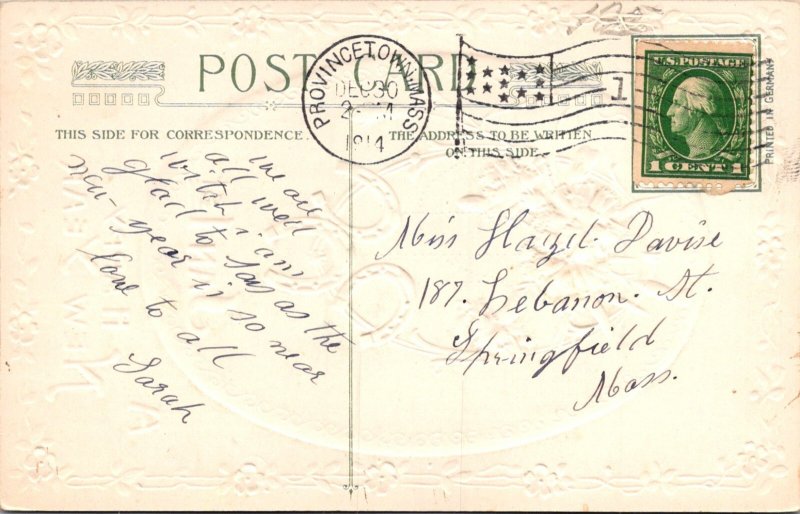 POST CARD
PROVINCETOWN, MASS.
DEC 30
2- M
1914
1
U.S. POSTAGE
1 CENT 1
PRINTED IN GERMANY
THIS SIDE FOR CORRESPONDENCE.
THE ADDRESS TO BE WRITTEN
ON THIS SIDE.
we are
all well
witch i am
glad to say as the
new year is so near
love to all
Sarah
Miss Hazel Davise
187. Lebanon. St.
Springfield
Mass.